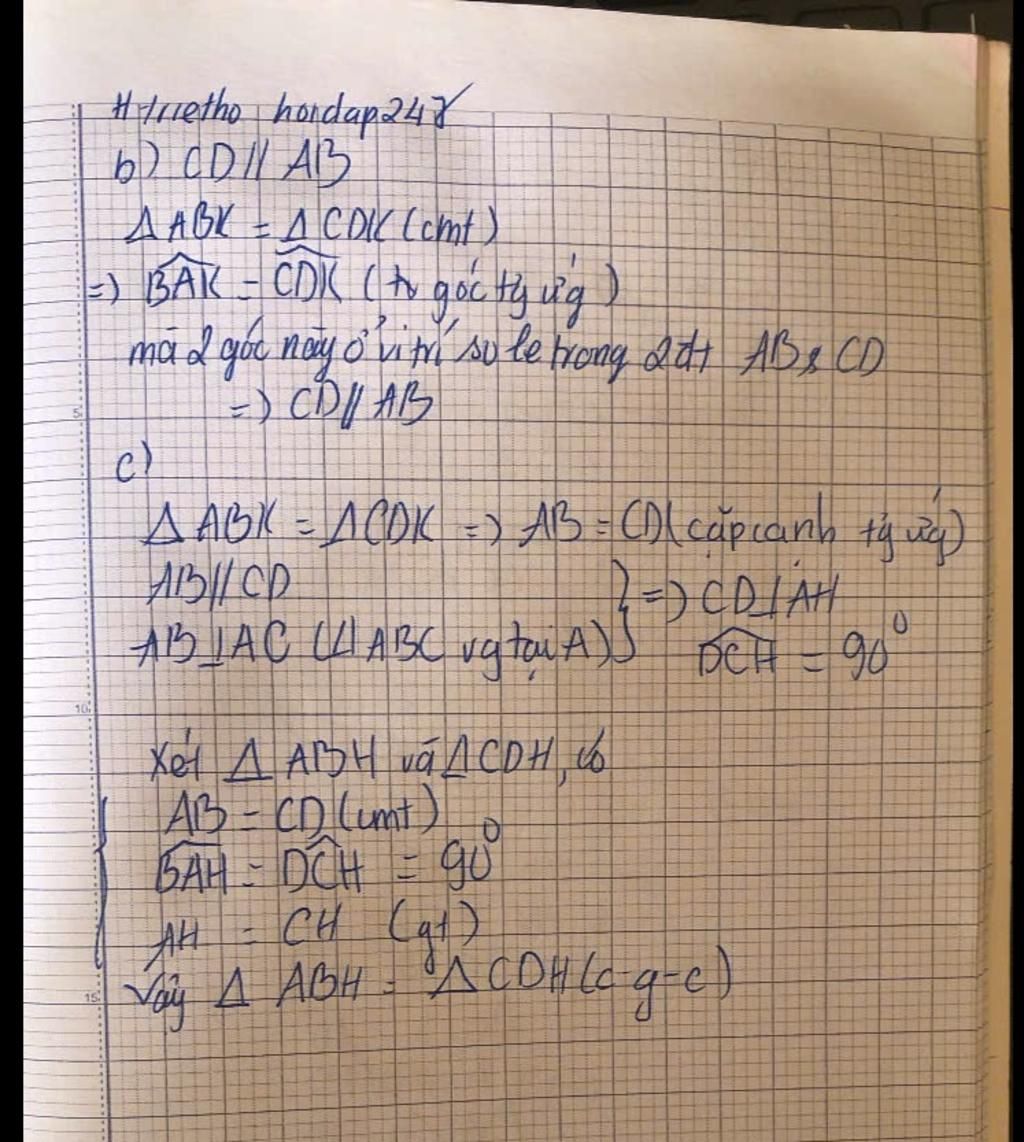 hoidap247
b) CD // AB
Δ ABK = Δ CDK (cmt)
=) BAK = CDK ( góc tg ứg )
mà 2 góc này ở vị trí so le trong 2 đt AB & CD
=) CD // AB
5
c)
Δ ABK = Δ CDK =) AB = CD (cặp cạnh tg ứg)
AB // CD
AB ⊥ AC (Δ ABC vg tại A) } =) CD ⊥ AH
DCH = 90⁰
10
Xét Δ ABH và Δ CDH, có
AB = CD (cmt)
BAH = DCH = 90⁰
AH = CH (gt)
15
Vậy Δ ABH = Δ CDH (c-g-c)